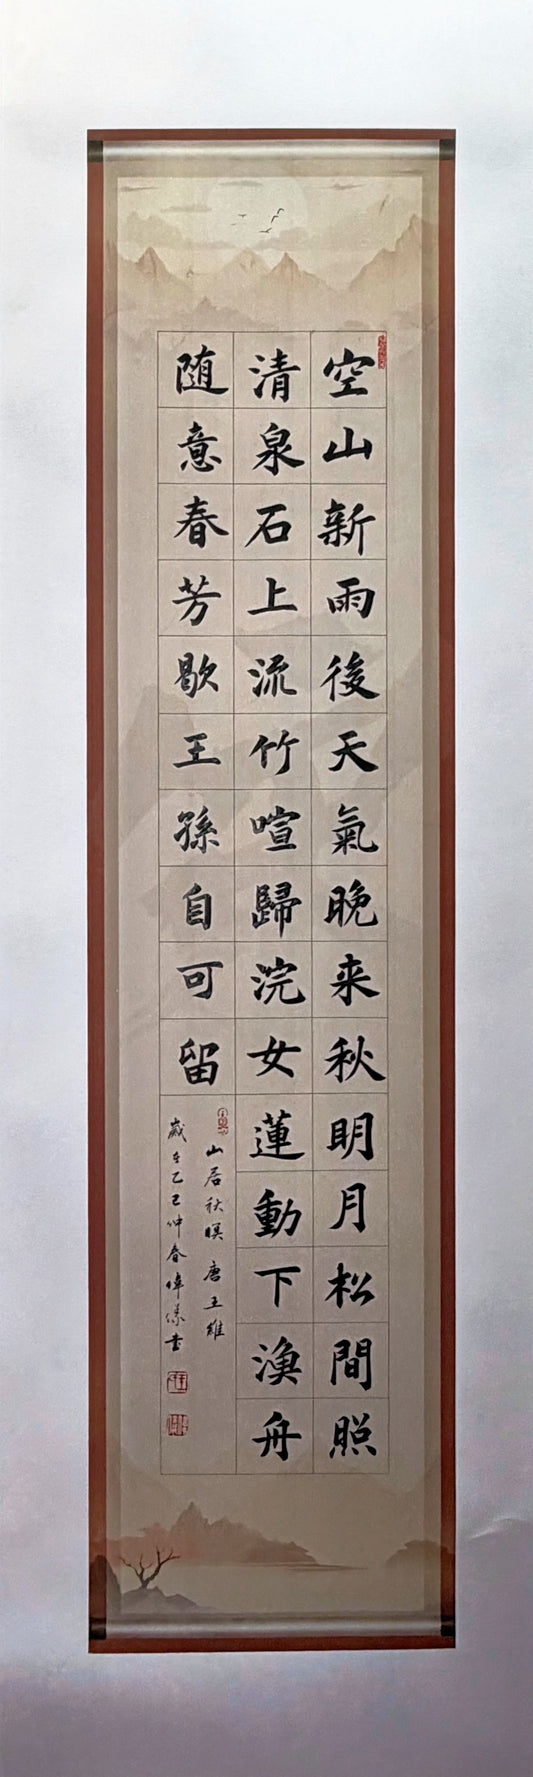 空山新雨後天氣晚来秋明月松間照
清泉石上流竹喧歸浣女蓮動下漁舟
随意春芳歇王孫自可留
山居秋暝 唐王維
歲在乙巳仲春 書